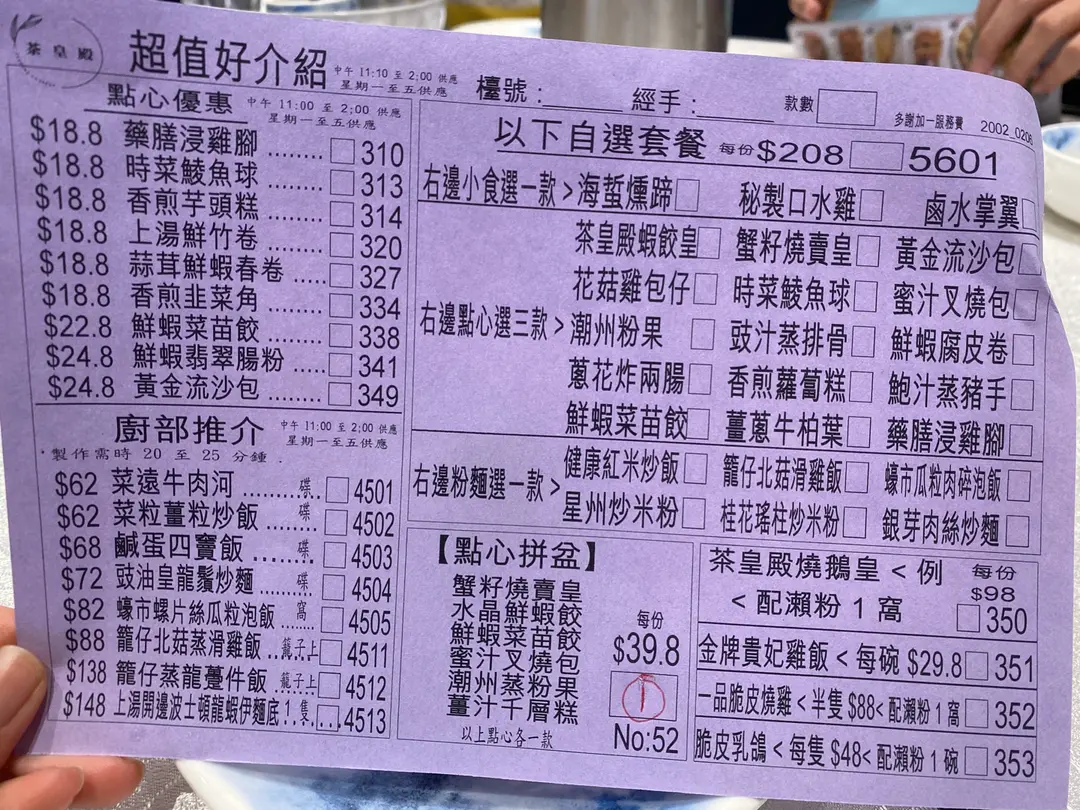 茶皇殿
超值好介紹 中午 11:10 至 2:00 供應
星期一至五供應
檯號：
經手：
款數
多謝加一服務費
2002_0206
點心優惠 中午 11:00 至 2:00 供應
星期一至五供應
$18.8 藥膳浸雞腳 ........ 310
$18.8 時菜鯪魚球 ........ 313
$18.8 香煎芋頭糕 ........ 314
$18.8 上湯鮮竹卷 ........ 320
$18.8 蒜茸鮮蝦春卷 ..... 327
$18.8 香煎韭菜角 ........ 334
$22.8 鮮蝦菜苗餃 ........ 338
$24.8 鮮蝦翡翠腸粉 ..... 341
$24.8 黃金流沙包 ........ 349
廚部推介 中午 11:00 至 2:00 供應
星期一至五供應
製作需時 20 至 25 分鍾 .
$62 菜遠牛肉河 ......... 碟 4501
$62 菜粒薑粒炒飯 ....... 碟 4502
$68 鹹蛋四寶飯 ........ 碟 4503
$72 豉油皇龍鬚炒麵 ..... 碟 4504
$82 蠔市螺片絲瓜粒泡飯 ....... 窩 4505
$88 籠仔北菇蒸滑雞飯 ... 籠子上 4511
$138 籠仔蒸龍躉件飯 ... 籠子上 4512
$148 上湯開邊波士頓龍蝦伊麵底 1 隻 .... 4513
以下自選套餐 每份 $208 5601
右邊小食選一款 > 海蜇燻蹄 秘製口水雞 鹵水掌翼
右邊點心選三款 >
茶皇殿蝦餃皇 蟹籽燒賣皇 黃金流沙包
花菇雞包仔 時菜鯪魚球 蜜汁叉燒包
潮州粉果 豉汁蒸排骨 鮮蝦腐皮卷
蔥花炸兩腸 香煎蘿蔔糕 鮑汁蒸豬手
鮮蝦菜苗餃 薑蔥牛柏葉 藥膳浸雞腳
右邊粉麵選一款 >
健康紅米炒飯 籠仔北菇滑雞飯 蠔市瓜粒肉碎泡飯
星州炒米粉 桂花瑤柱炒米粉 銀芽肉絲炒麵
【點心拼盆】
蟹籽燒賣皇
水晶鮮蝦餃
鮮蝦菜苗餃
蜜汁叉燒包
潮州蒸粉果
薑汁千層糕
以上點心各一款
每份
$39.8
1
No:52
茶皇殿燒鵝皇 < 例 每份
$98
< 配瀨粉 1 窩 350
金牌貴妃雞飯 < 每碗 $29.8 351
一品脆皮燒雞 < 半隻 $88< 配瀨粉 1 窩 352
脆皮乳鴿 < 每隻 $48< 配瀨粉 1 碗 353